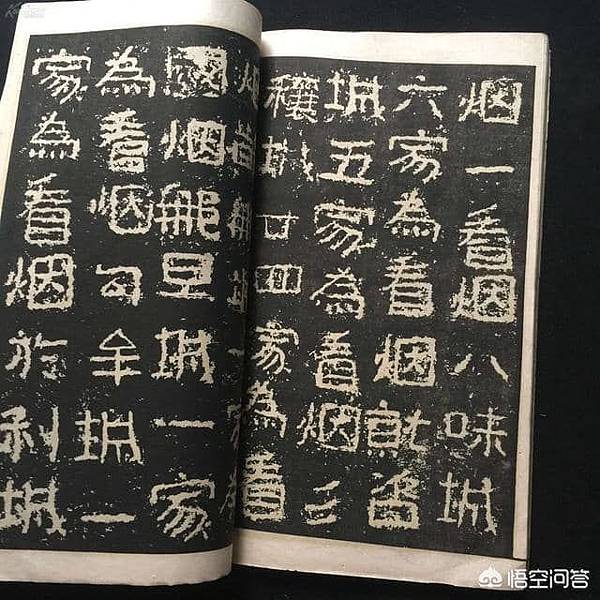 烟一看烟八味城
六家為看烟就咨
城五家為看烟彡
穰城廿四家為看
烟散那城一家為
國烟那旦城一家
為看烟勾牟城一
家為看烟於利城
悟空问答